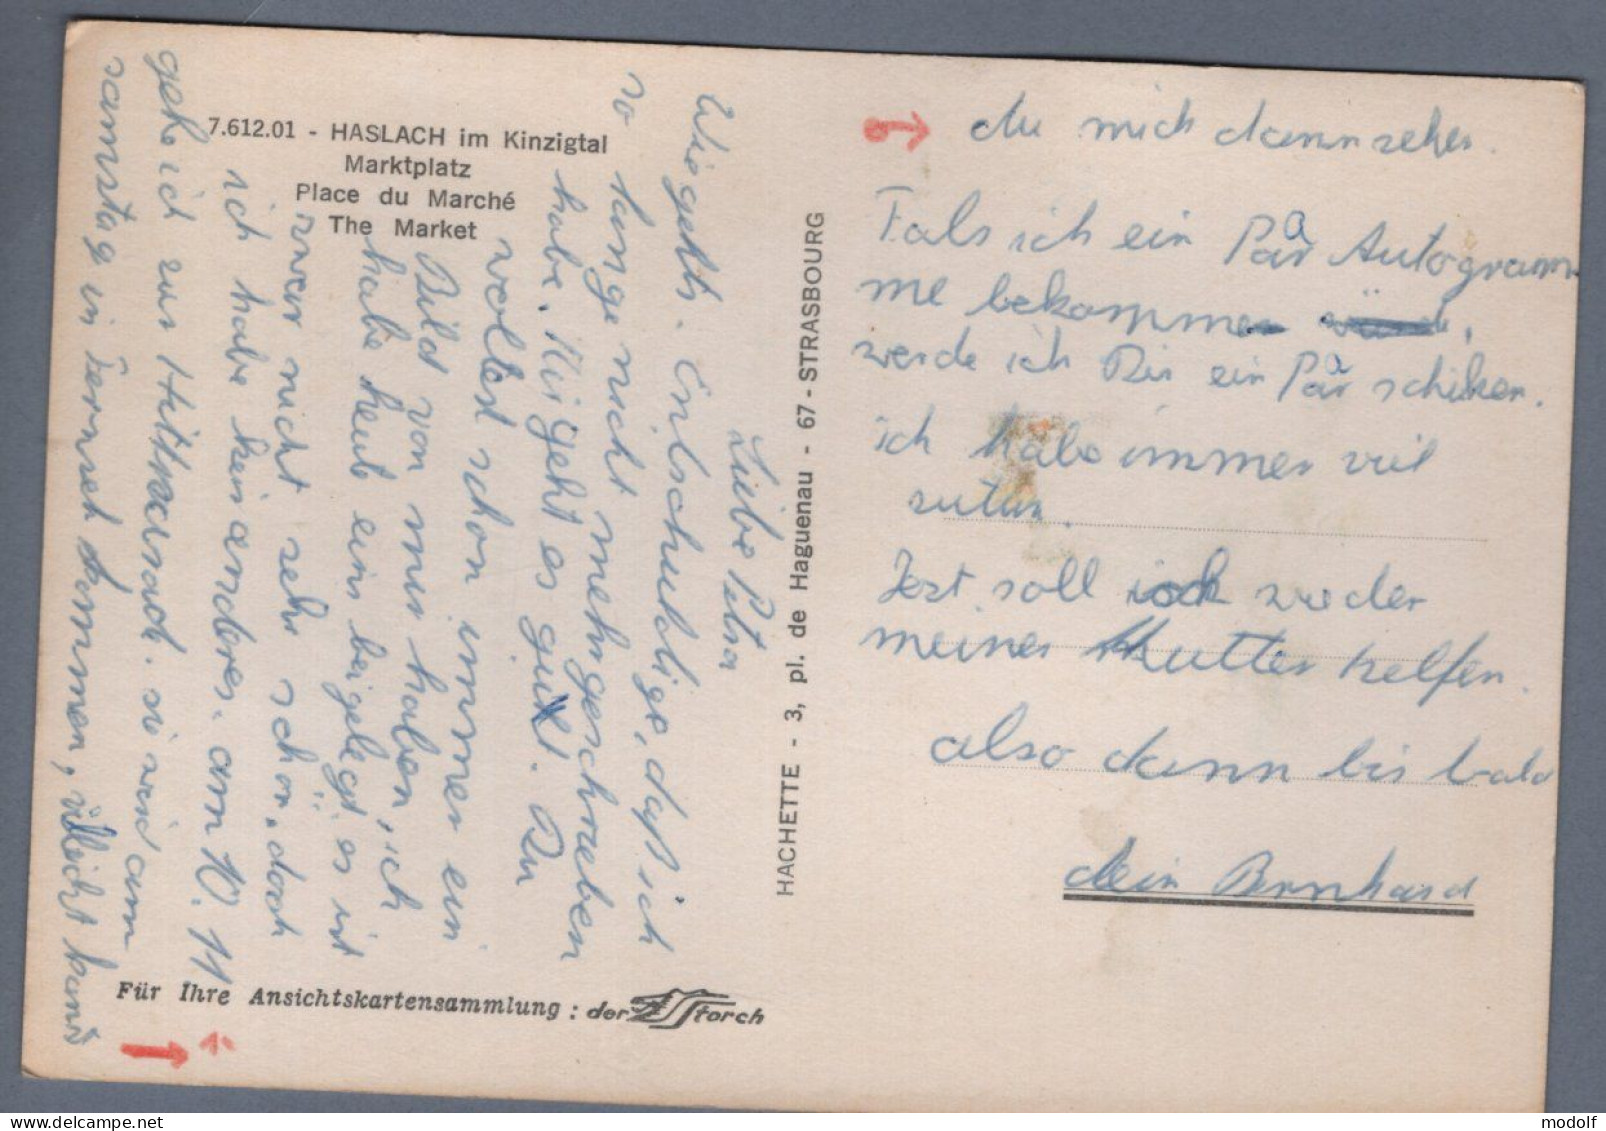 7.612.01 - HASLACH im Kinzigtal
Marktplatz
Place du Marché
The Market
Liebe Petra
Wie gehts. Entschuldige, daß ich
so lange nicht mehr geschrieben
habe. Mir geht es gut. Du
wolltest schon immer ein
Bild von mir haben, ich
habe heute eins beigelegt es ist
zwar nicht sehr schön, doch
ich habe kein anderes. am 10. 11
gehe ich zur sie wird am
samstag in Fernseh kommen, villeicht kanns
→ du mich dann sehen.
Fals ich ein Par Autogram
me bekomme,
werde ich Dir ein Par schiken.
ich habe immer viel
zutun.
Jezt soll ich wieder
meiner Mutter helfen.
also dann bis bald
dein Bernhard
HACHETTE - 3, pl. de Haguenau - 67 - STRASBOURG
Für Ihre Ansichtskartensammlung : der Storch
→
modolf